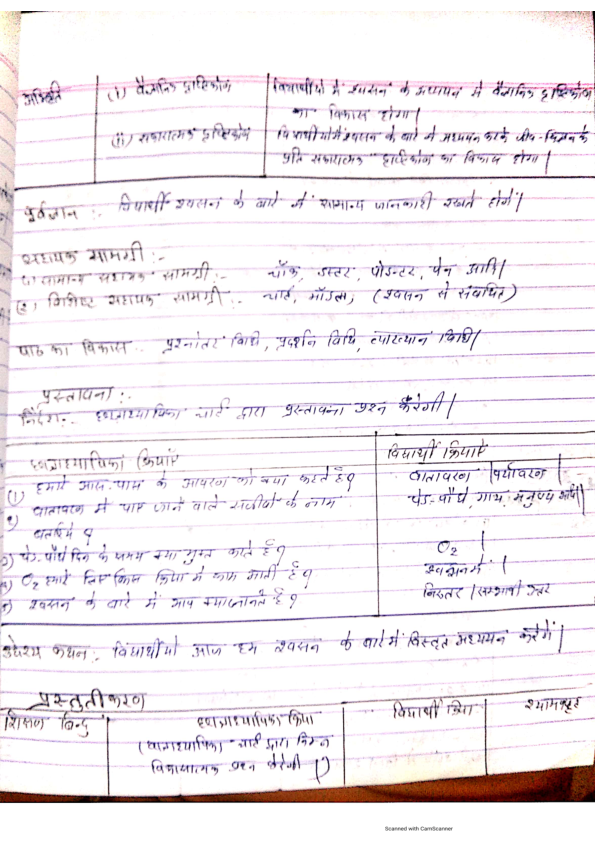 अभिवृत्ति (i) वैज्ञानिक दृष्टिकोण विद्यार्थीयो में श्वसन के अध्ययन से वैज्ञानिक दृष्टिकोण
का विकास होगा|
(ii) सकारात्मक दृष्टिकोण विद्यार्थीयों में श्वसन के बारे में अध्ययन करके जीव-विज्ञान के
प्रति सकारात्मक दृष्टिकोण का विकास होगा|
पूर्वज्ञान :- विद्यार्थी श्वसन के बारे में सामान्य जानकारी रखते होगें|
सहायक सामग्री :-
(1) सामान्य सहायक सामग्री :- चॉक, डस्टर, पोइन्टर, पेन आदि|
(2) विशिष्ट सहायक सामग्री :- चार्ट, मॉडल, (श्वसन से संबंधित)
पाठ का विकास - प्रश्नोतर विधि, प्रदर्शन विधि, व्याख्यान विधि|
प्रस्तावना :-
निर्देश :- छात्राध्यापिका चार्ट द्वारा प्रस्तावना प्रश्न करेगी|
छात्राध्यापिका क्रियाएं विद्यार्थी क्रियाएं
(1) हमारे आस-पास के आवरण को क्या कहते है? वातावरण|पर्यावरण|
2) वातावरण में पाए जाने वाले सजीवों के नाम पेड़-पौधे, गाय, मनुष्य आदि|
बताईये ?
3) पेड़-पौधे दिन के समय क्या मुक्त करते है? O₂|
4) O₂ हमारे लिए किस क्रिया में काम आती है? श्वसन में|
5) श्वसन के बारे में आप क्या जानते है? निरुतर|सम्भावी उत्तर
उद्देश्य कथन - विद्यार्थीयो आज हम श्वसन के बारे में विस्तृत अध्ययन करेगें|
प्रस्तुतीकरण
शिक्षण बिन्दु छात्राध्यापिका क्रिया विद्यार्थी क्रिया श्यामपट्ट
(छात्राध्यापिका चार्ट द्वारा निम्न
विकासात्मक प्रश्न करेगी|)
Scanned with CamScanner